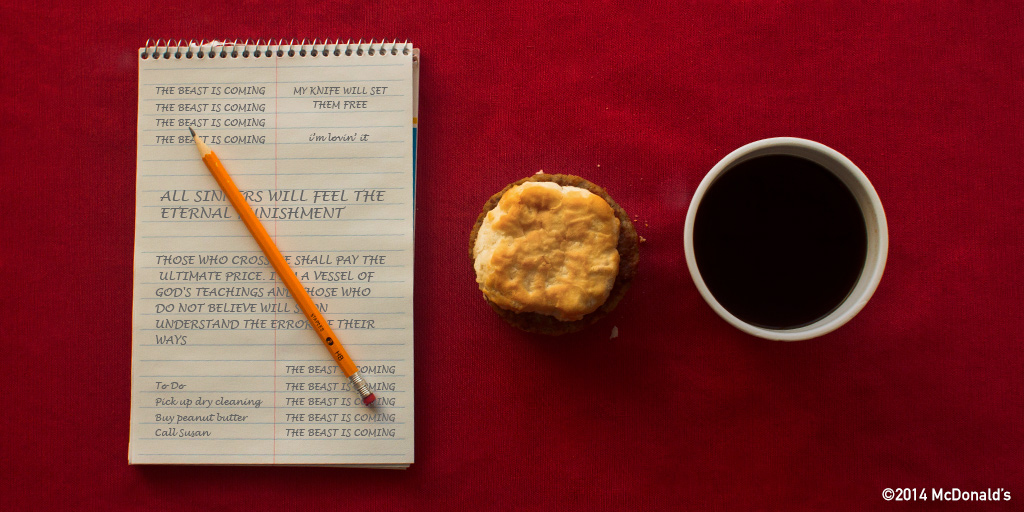 THE BEAST IS COMING
THE BEAST IS COMING
THE BEAST IS COMING
THE BEAST IS COMING
MY KNIFE WILL SET
THEM FREE
i'm lovin' it
ALL SINNERS WILL FEEL THE
ETERNAL PUNISHMENT
THOSE WHO CROSS ME SHALL PAY THE
ULTIMATE PRICE. I'M A VESSEL OF
GOD'S TEACHINGS AND THOSE WHO
DO NOT BELIEVE WILL SOON
UNDERSTAND THE ERROR OF THEIR
WAYS
THE BEAST IS COMING
THE BEAST IS COMING
THE BEAST IS COMING
THE BEAST IS COMING
THE BEAST IS COMING
To Do
Pick up dry cleaning
Buy peanut butter
Call Susan
HB
©2014 McDonald's